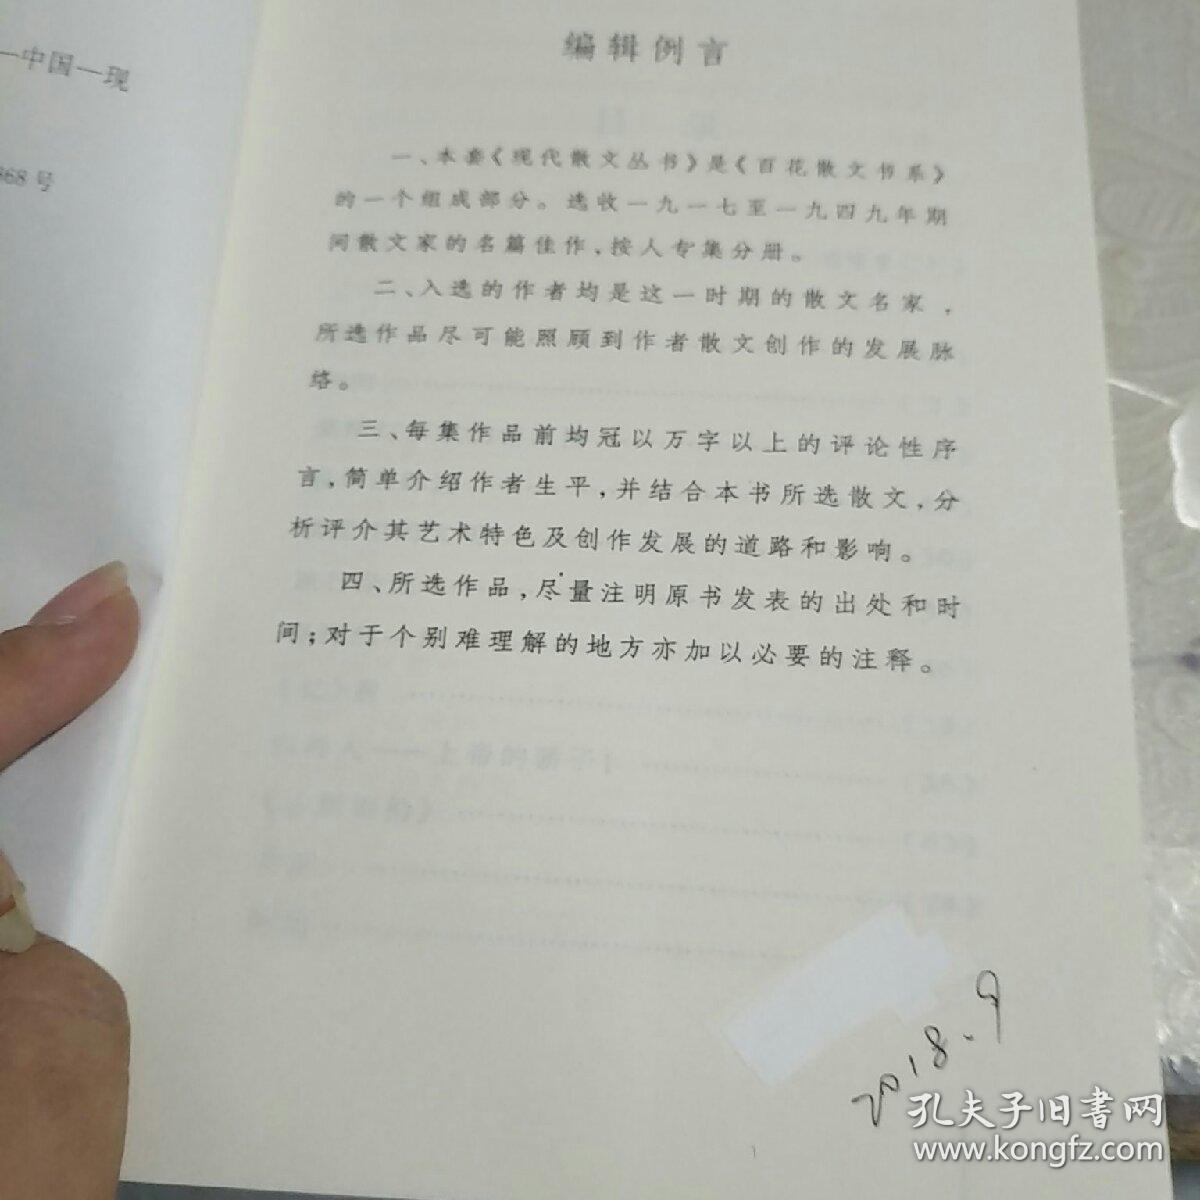 —中国—现
868号
编辑例言
一、本套《现代散文丛书》是《百花散文书系》
的一个组成部分。选收一九一七至一九四九年期
间散文家的名篇佳作，按人专集分册。
二、入选的作者均是这一时期的散文名家，
所选作品尽可能照顾到作者散文创作的发展脉
络。
三、每集作品前均冠以万字以上的评论性序
言，简单介绍作者生平，并结合本书所选散文，分
析评介其艺术特色及创作发展的道路和影响。
四、所选作品，尽量注明原书发表的出处和时
间；对于个别难理解的地方亦加以必要的注释。
2018.9
孔夫子旧书网
www.kongfz.com